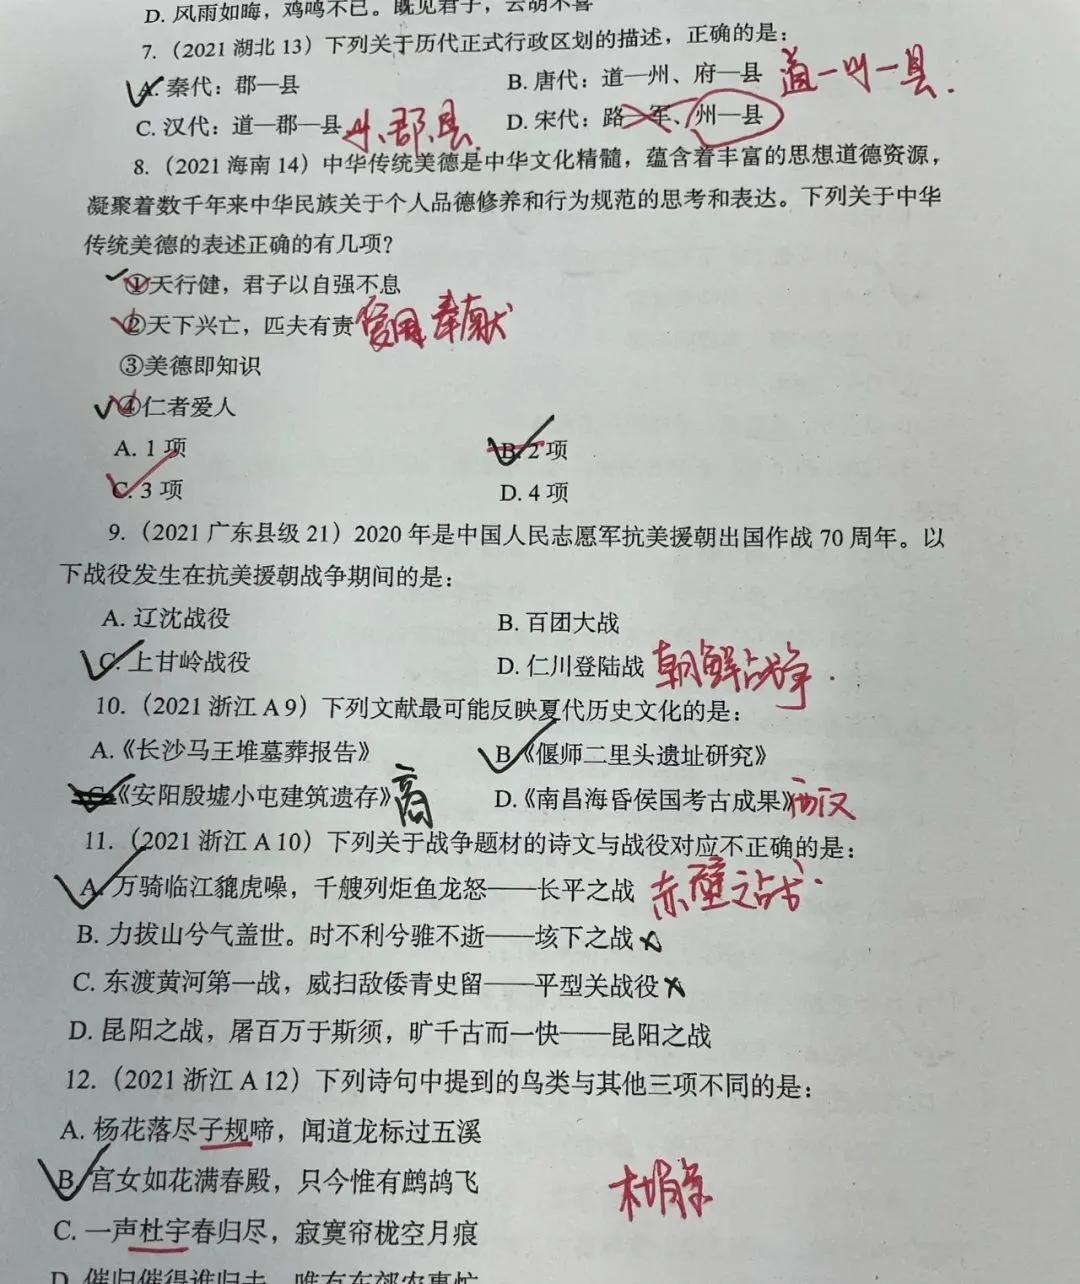 D. 风雨如晦，鸡鸣不已。既见君子，云胡不喜
7.（2021 湖北 13）下列关于历代正式行政区划的描述，正确的是：
A. 秦代：郡—县
B. 唐代：道—州、府—县 道一州一县.
C. 汉代：道—郡—县 州、郡、县.
D. 宋代：路—军、州—县
8.（2021 海南 14）中华传统美德是中华文化精髓，蕴含着丰富的思想道德资源，
凝聚着数千年来中华民族关于个人品德修养和行为规范的思考和表达。下列关于中华
传统美德的表述正确的有几项？
①天行健，君子以自强不息
②天下兴亡，匹夫有责 爱国 奉献
③美德即知识
④仁者爱人
A. 1 项
B. 2 项
C. 3 项
D. 4 项
9.（2021 广东县级 21）2020 年是中国人民志愿军抗美援朝出国作战 70 周年。以
下战役发生在抗美援朝战争期间的是：
A. 辽沈战役
B. 百团大战
C. 上甘岭战役
D. 仁川登陆战 朝鲜战争.
10.（2021 浙江 A 9）下列文献最可能反映夏代历史文化的是：
A.《长沙马王堆墓葬报告》
B.《偃师二里头遗址研究》
C.《安阳殷墟小屯建筑遗存》商
D.《南昌海昏侯国考古成果》西汉
11.（2021 浙江 A 10）下列关于战争题材的诗文与战役对应不正确的是：
A. 万骑临江貔虎噪，千艘列炬鱼龙怒——长平之战 赤壁之战.
B. 力拔山兮气盖世。时不利兮骓不逝——垓下之战
C. 东渡黄河第一战，威扫敌倭青史留——平型关战役
D. 昆阳之战，屠百万于斯须，旷千古而一快——昆阳之战
12.（2021 浙江 A 12）下列诗句中提到的鸟类与其他三项不同的是：
A. 杨花落尽子规啼，闻道龙标过五溪
B. 宫女如花满春殿，只今惟有鹧鸪飞
杜鹃
C. 一声杜宇春归尽，寂寞帘栊空月痕
D. 催归催得谁归去，唯有东郊农事忙